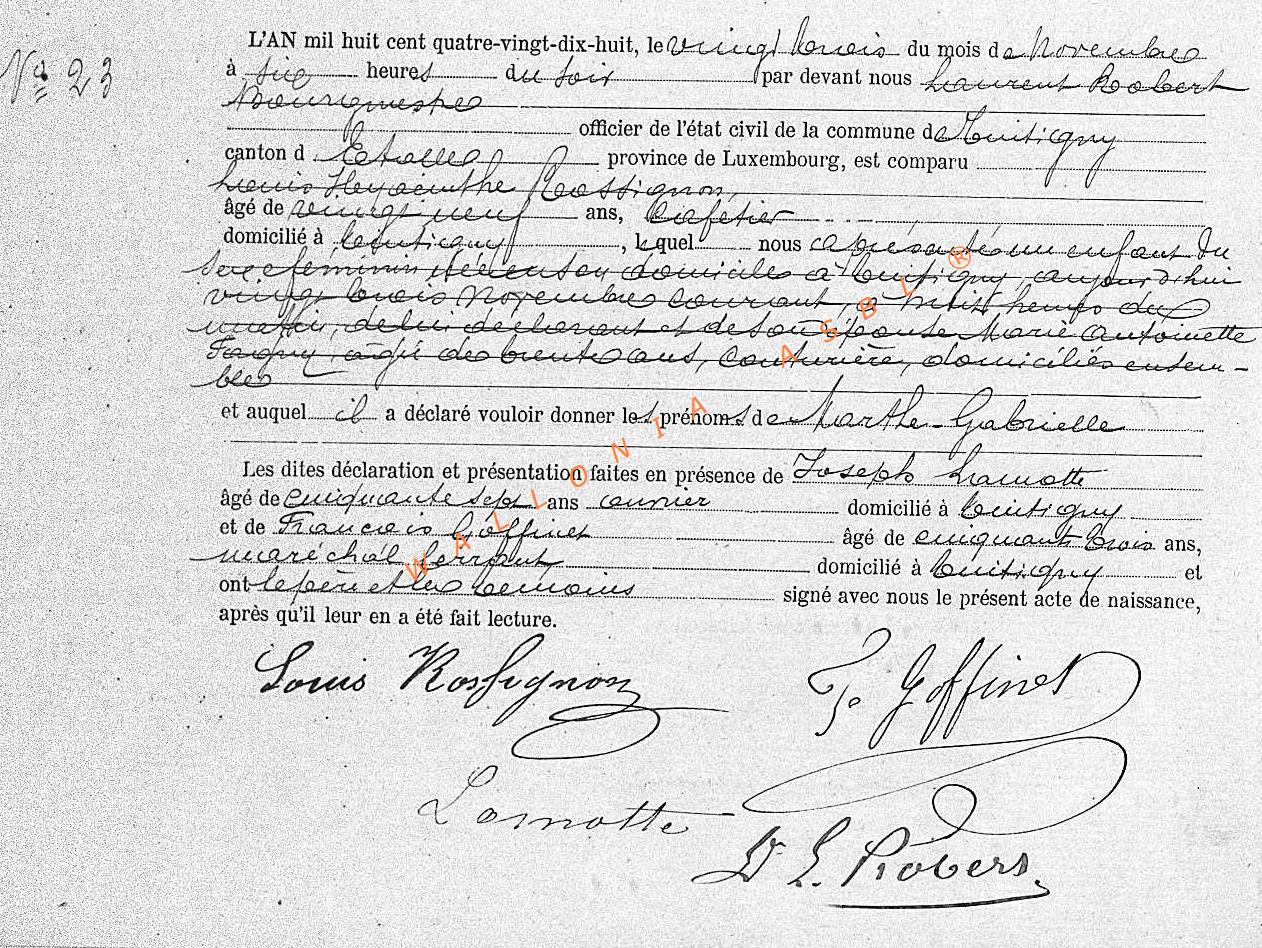 Nº 23
L'AN mil huit cent quatre-vingt-dix-huit, le vingt trois du mois de Novembre
à six heures du soir par devant nous Laurent Robert
Bourgmestre
officier de l'état civil de la commune de Tintigny
canton d Etalle province de Luxembourg, est comparu
Louis Hyacinthe Rossignon,
âgé de vingt neuf ans, Cafetier
domicilié à Tintigny, lequel nous a présenté un enfant du
sexe féminin né en son domicile à Tintigny, aujourd'hui
vingt trois Novembre courant, à huit heures du
matin, de lui déclarant et de son épouse Marie Antoinette
Fagny, âgée de trente ans, Couturière, domiciliés ensem-
bles
et auquel il a déclaré vouloir donner les prénoms de Marthe-Gabrielle
Les dites déclaration et présentation faites en présence de Joseph Lamotte
âgé de cinquante sept ans domicilié à Tintigny
et de François Goffinet âgé de cinquant trois ans,
maréchal ferrant domicilié à Tintigny et
ont le père et les témoins signé avec nous le présent acte de naissance,
après qu'il leur en a été fait lecture.
Louis Rossignon
F. Goffinet
Lamotte
Dr L. Robert
WALLONIA ASBL ®